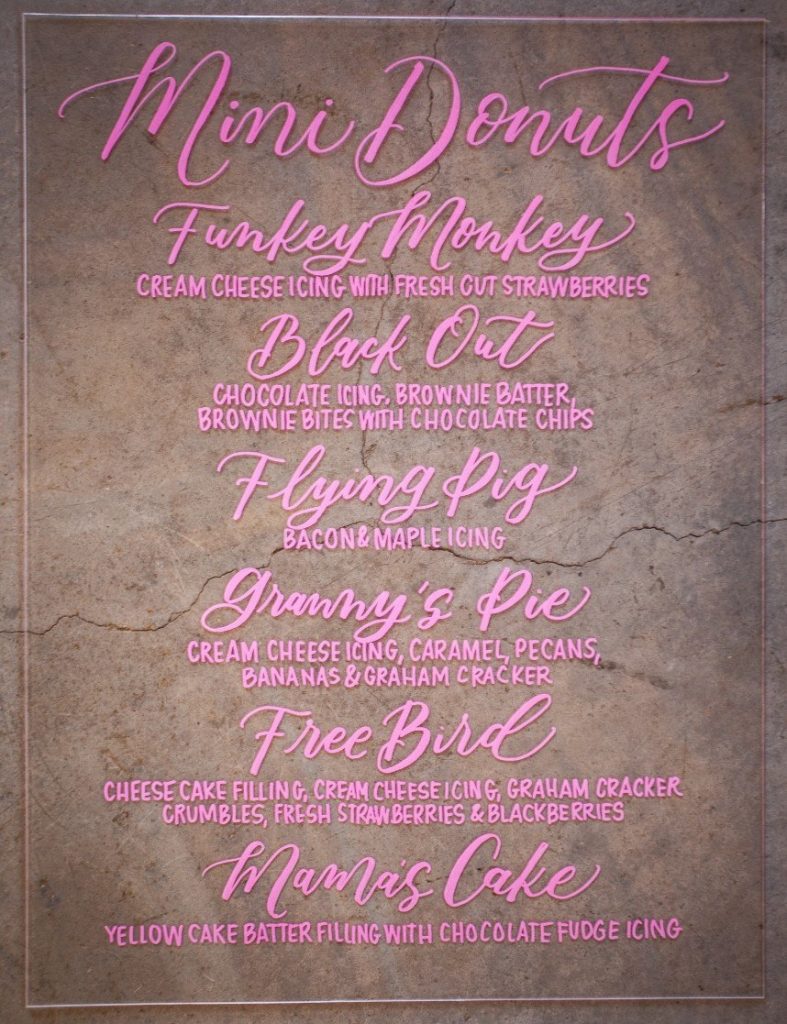 Mini Donuts
Funkey Monkey
CREAM CHEESE ICING WITH FRESH CUT STRAWBERRIES
Black Out
CHOCOLATE ICING, BROWNIE BATTER,
BROWNIE BITES WITH CHOCOLATE CHIPS
Flying Pig
BACON & MAPLE ICING
Granny's Pie
CREAM CHEESE ICING, CARAMEL, PECANS,
BANANAS & GRAHAM CRACKER
Free Bird
CHEESE CAKE FILLING, CREAM CHEESE ICING, GRAHAM CRACKER
CRUMBLES, FRESH STRAWBERRIES & BLACKBERRIES
Mama's Cake
YELLOW CAKE BATTER FILLING WITH CHOCOLATE FUDGE ICING